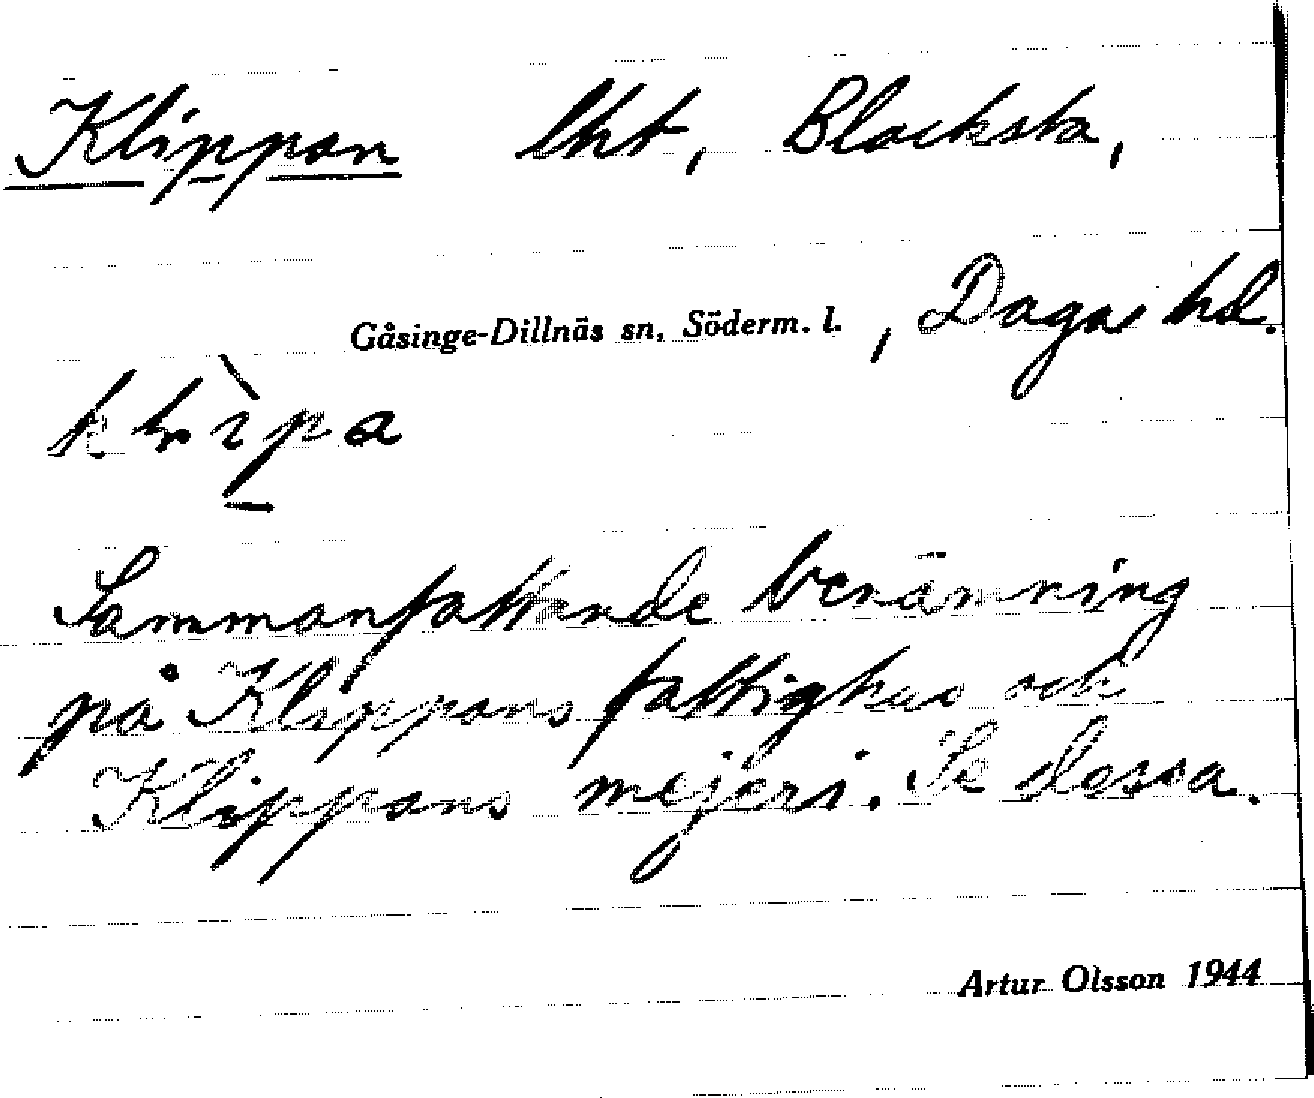 Klippan lht, Blacksta,
Gåsinge-Dillnäs sn, Söderm. l. , Daga hd.
Sammanfattande benämning
på Klippans fattighus och
Klippans mejeri. Se dessa.
Artur Olsson 1944